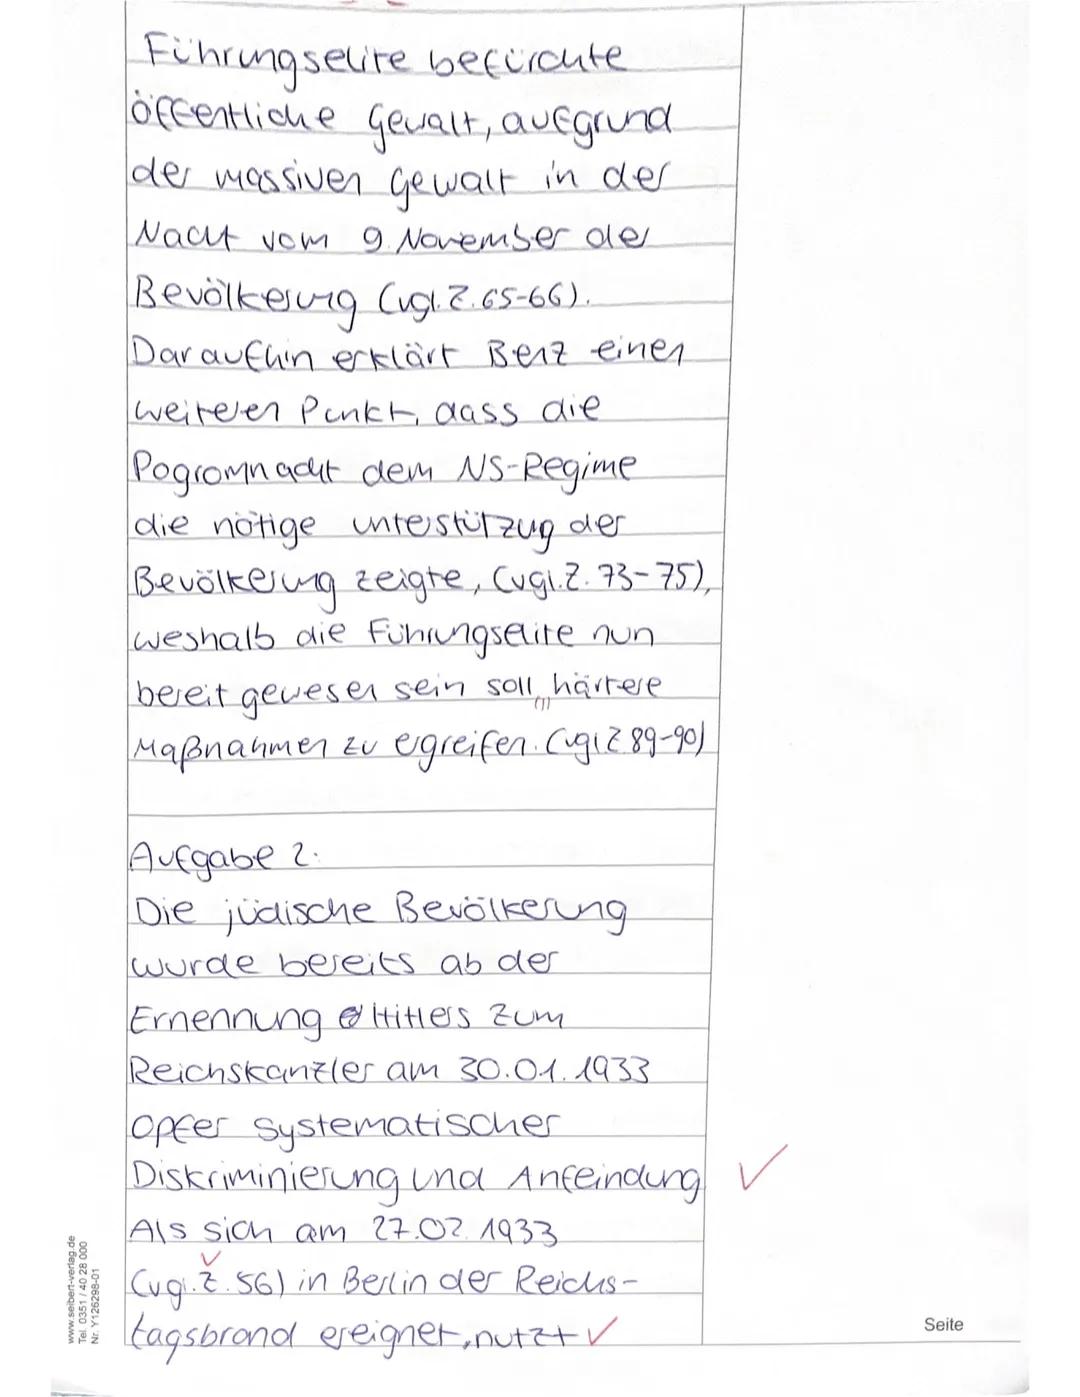 Führungselite befürchte
öffentliche Gewalt, aufgrund
der massiven Gewalt in der
Nacht vom 9. November der
Bevölkerung (vgl. Z. 65-66).
Daraufhin erklärt Benz einen
weiteren Punkt, dass die
Pogromnacht dem NS-Regime
die nötige unterstützug der
Bevölkerung zeigte, (vgl. Z. 73-75),
weshalb die Führungselite nun
bereit gewesen sein soll, härtere
Maßnahmen zu ergreifen. (vgl Z 89-90)
Aufgabe 2:
Die jüdische Bevölkerung
wurde bereits ab der
Ernennung Hitlers zum
Reichskanzler am 30.01.1933
opfer systematischer
Diskriminierung und Anfeindung
Als sich am 27.02.1933
(vgl. Z. 56) in Berlin der Reichs-
tagsbrand ereignet, nutzt
www.seibert-verlag.de
Tel. 0351 / 40 28 000
Nr. Y126298-01
Seite